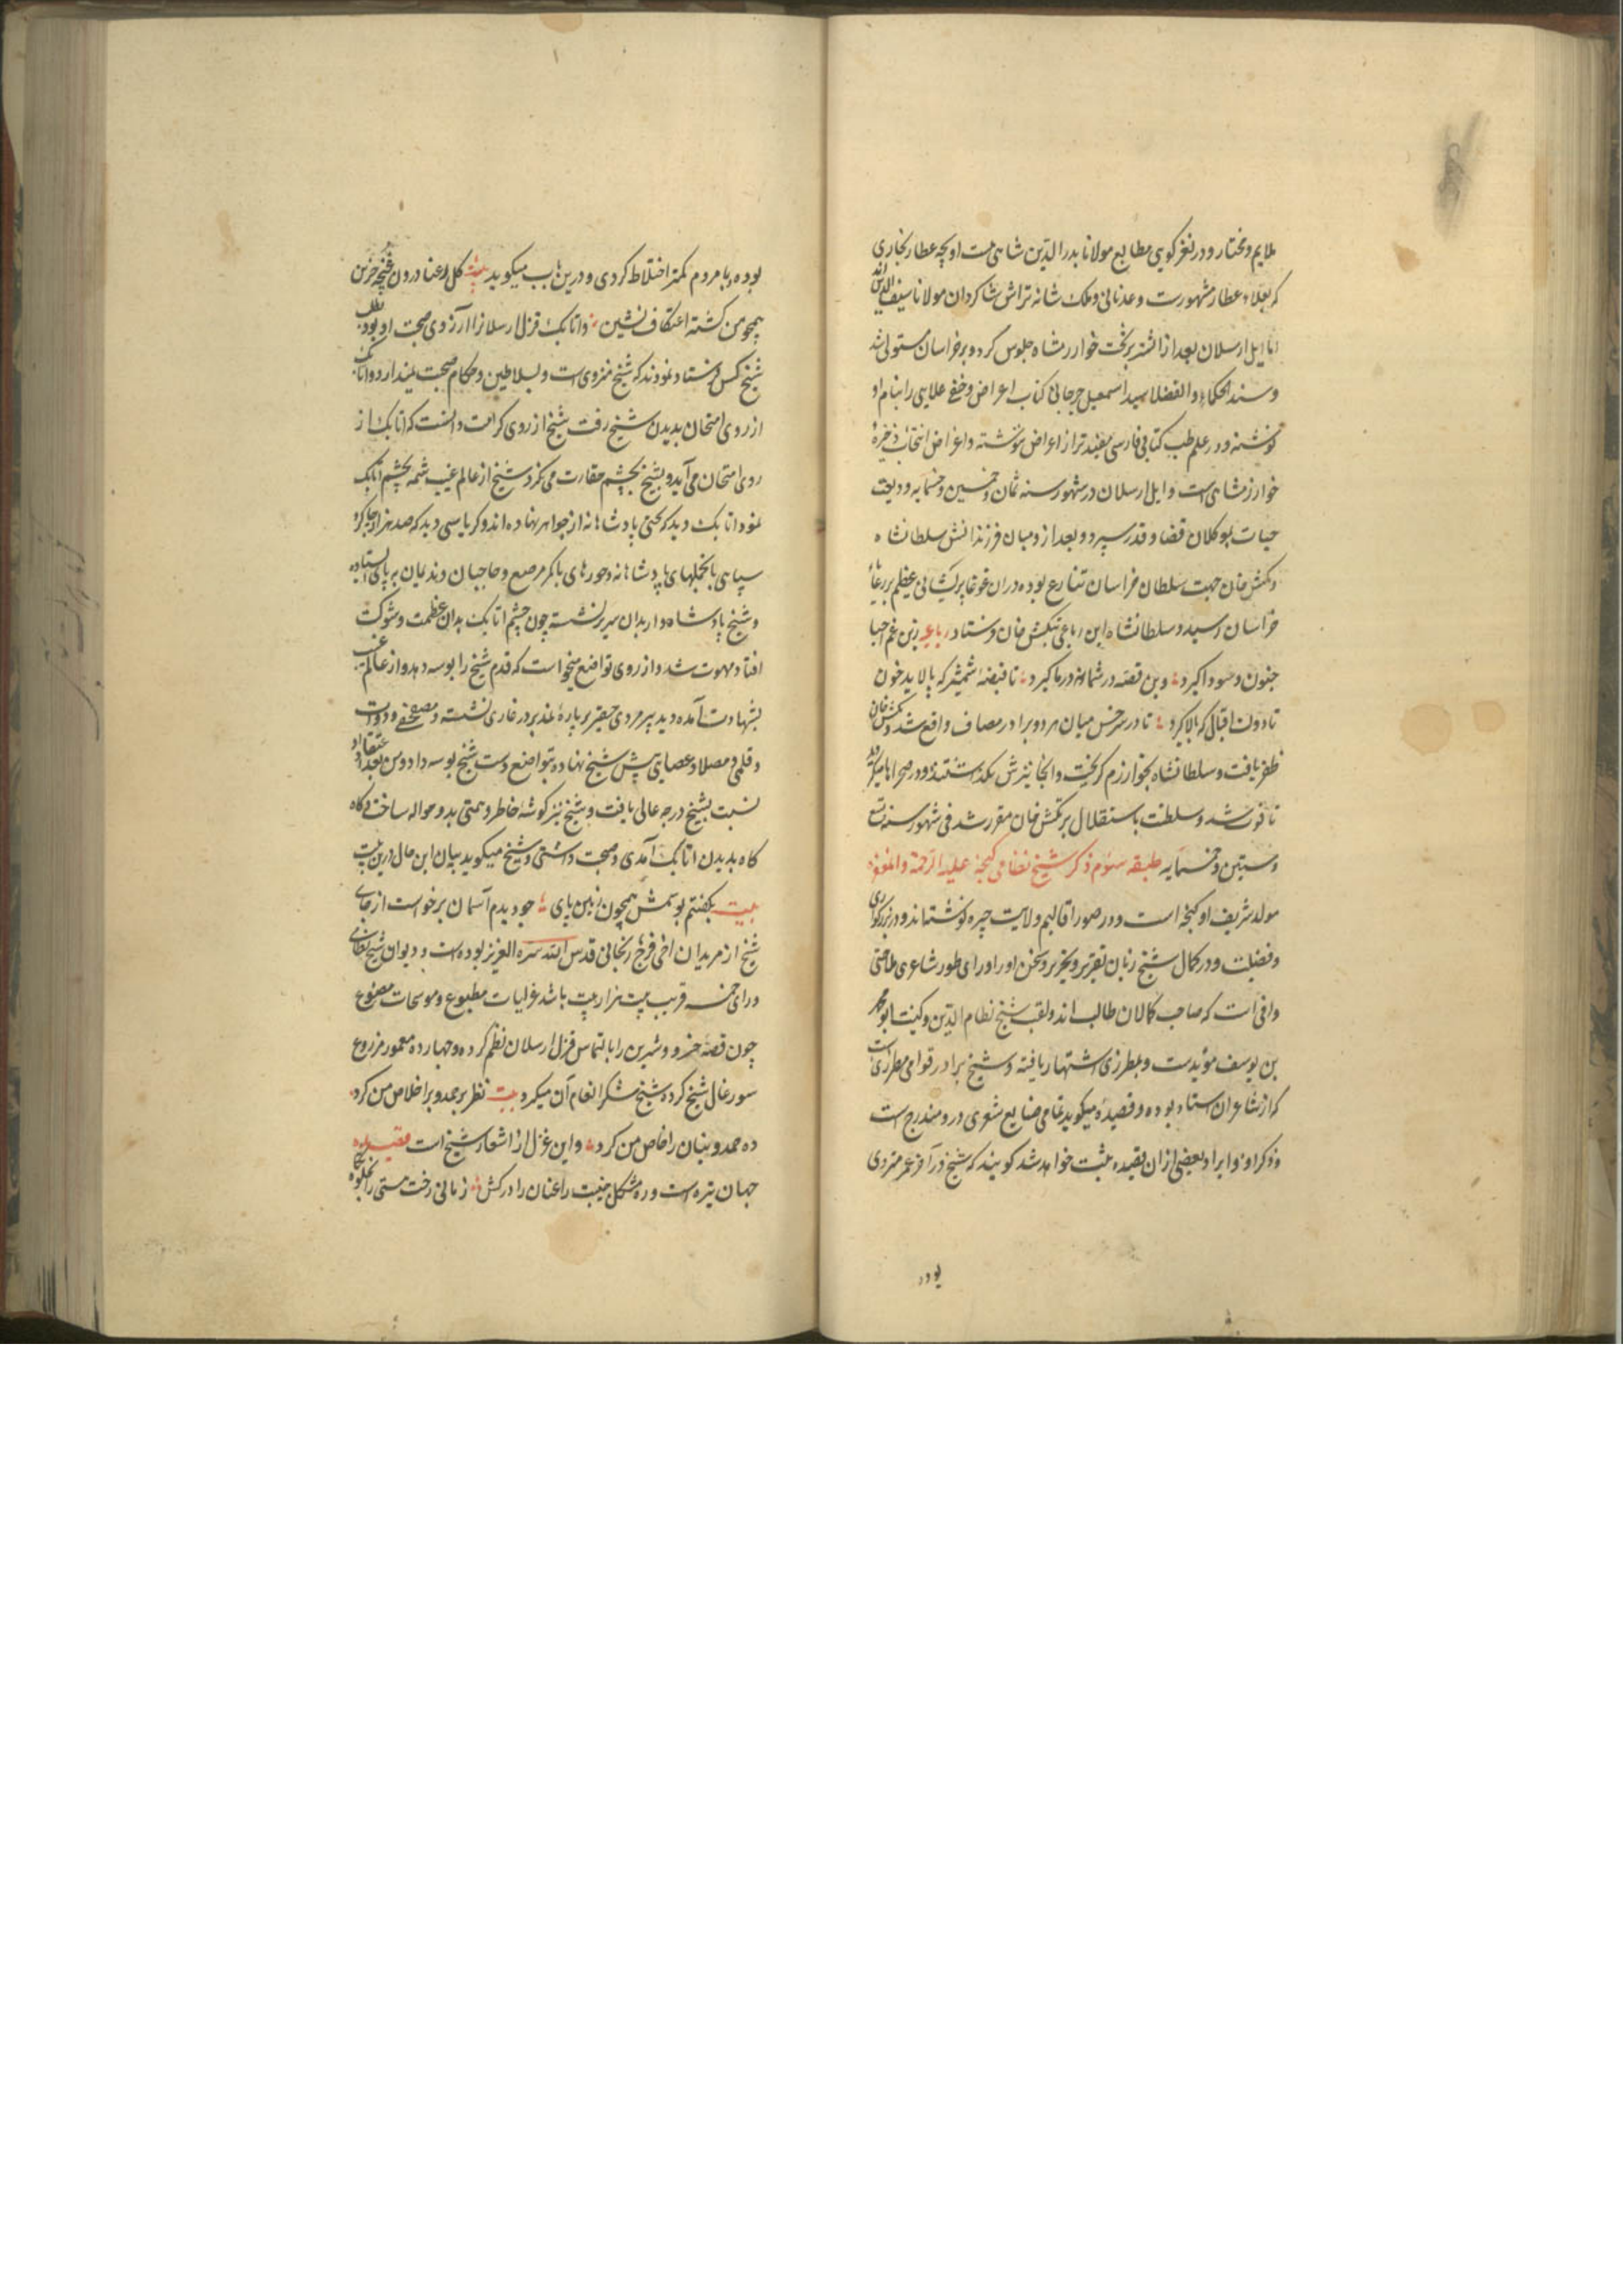 ملایم و مختار و در نغز کویی مطابع مولانا بدر الدین شاشی است او بچه عطار بخاری
که بعلاء عطار مشهورست و عدنانی و ملک شانه تراش شاکردان مولانا سیف الدین اند
اما ایل ارسلان بعد از اتسز بر تخت خوارزمشاه جلوس کرد و بر خراسان مستولی شد
و سند الحکماء و الفضلا سید اسمعیل جرجانی کتاب اعراض و خفی علایی را بنام او
نوشته و در علم طب کتابی فارسی مفیدتر از اعراض ننوشته و اغراض انتخاب ذخیره
خوارزمشاهی است و ایل ارسلان در شهور سنه ثمان و خمسین و خمسمایه ودیعت
حیات بموکلان قضا و قدر سپرد و بعد از و میان فرزندانش سلطانشاه
و تکش خان جهت سلطان خراسان تنازع بوده در ان غوغا پریشانی عظیم برعایا
خراسان رسید و سلطانشاه این رباعی بتکش خان فرستاد رباعی زین غم اجبا
جنون و سودا کیرد وین قصه در شما و در ما کیرد تا قبضه شمشیر که پالاید خون
تا دولت اقبال که بالا کیرد تا در سرخس میان هر دو برادر مصاف واقع شد و تکش خان
ظفر یافت و سلطانشاه بخوارزم کریخت و انجا نیزش نکذاشتند و در صحراها میکردید
تا فوت شد و سلطنت باستقلال بر تکش خان مقرر شد فی شهور سنه تسع
و ستین و خمسمایه طبقه سوم ذکر شیخ نظامی کنجه علیه الرحمة والمغفرة
مولد شریف او کنجه است و در صور اقالیم ولایت جنزه نوشته‌اند و در بزرکواری
و فضیلت و در کمال شیخ زبان تقریر و تحریر و سخن او را ورای طور شاعری ملاحتی
وافی است که صاحب کمالان طالب اند و لقب شیخ نظام الدین و کنیت ابو محمد
بن یوسف مؤیدست و بمطرزی اشتهار یافته و شیخ برادر قوامی مطرزی است
که از شاعران استاد بوده و قصیده میکوید تمامی صنایع شعری در و مندرج است
و ذکر او و ایراد بعضی از ان قصیده مثبت خواهد شد کویند که شیخ در آخر عمر منزوی
بوده
بوده و با مردم کمتر اختلاط کردی و درین باب میکوید بیت کل رعنا درون غنچه حزین
همچو من کشته اعتکاف نشین و اتابک قزل ارسلان را آرزوی صحبت او بود بطلب
شیخ کس فرستاد نمودند که شیخ منزوی است و بسلاطین و حکام صحبت نمیدارد و اتابک
از روی امتحان بدیدن شیخ رفت شیخ از روی کرامت دانست که اتابک از
روی امتحان می آید و بشیخ بچشم حقارت می نکرد شیخ از عالم غیب شمه بچشم اتابک
نمود اتابک دید که تختی پادشاهانه از جواهر نهاده اند و کرباسی دید که صد هزار چاکر و
سپاهی با تجملهای پادشاهانه و حورهای با کمر مرصع و حاجبان و ندیمان بر پای ایستاده
و شیخ پادشاه وار بدان سریر نشسته چون چشم اتابک بدان عظمت و شوکت
افتاد مبهوت شد و از روی تواضع میخواست که قدم شیخ را بوسه دهد و از عالم غیب
بشهادت آمده دید پیر مردی حقیر بر پارهٔ نمد بر در غاری نشسته و مصحفی و دوات
و قلمی و مصلا و عصایی پیش شیخ نهاده و بتواضع دست شیخ بوسه داد و من بعد اعتقاد او
نسبت بشیخ درجه عالی یافت و شیخ نیز کوشهٔ خاطر و همتی بدو حواله ساخت و کاه
کاه بدیدن اتابک آمدی و صحبت داشتی و شیخ میکوید بیان این حال درین بیت
بیت بکفتم بوسمش همچون زمین پای چو دیدم آسمان برخواست از جای
شیخ از مریدان اخی فرج زنجانی قدس الله سره العزیز بوده است و دیوان شیخ نظامی
ورای خمسه قریب بیست هزار بیت باشد غزلیات مطبوع و موشحات مصنوع
چون قصه خسرو و شیرین را بالتماس قزل ارسلان نظم کرده و چهار ده معمور مزروع
سورغال شیخ کرد و شیخ شکر انعام آن میکرد بیت نظر بر حمد و بر اخلاص من کرد
ده حمدونیان را خاص من کرد و این غزل از اشعار شیخ است قصیده
جهان تیره است و ره مشکل جنیبت را عنان را درکش زمانی رخت هستی را بخلوتگاه